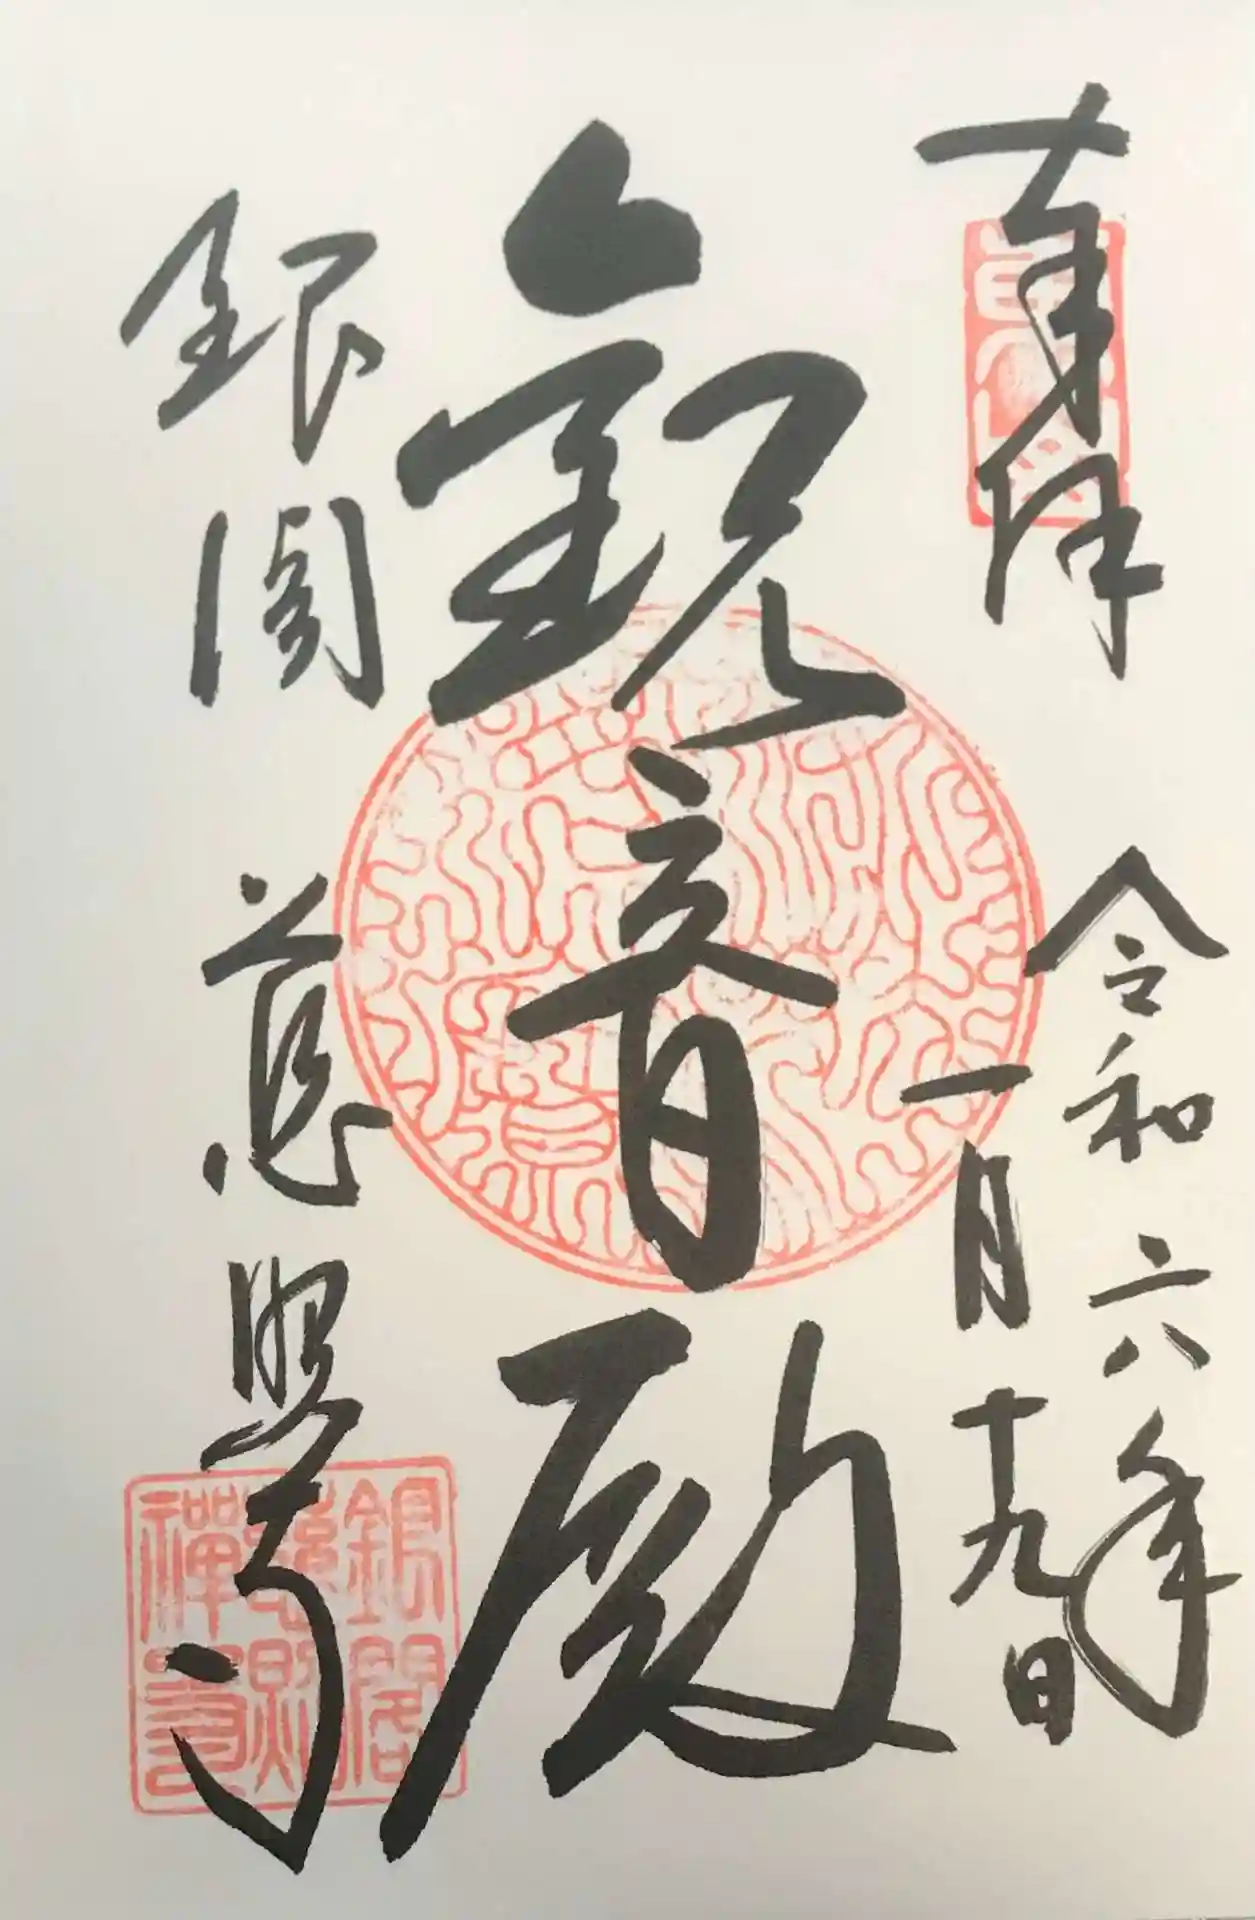 奉拝
令和六年
一月十九日
観音殿
銀閣 慈照寺
銀閣
慈照
禅寺